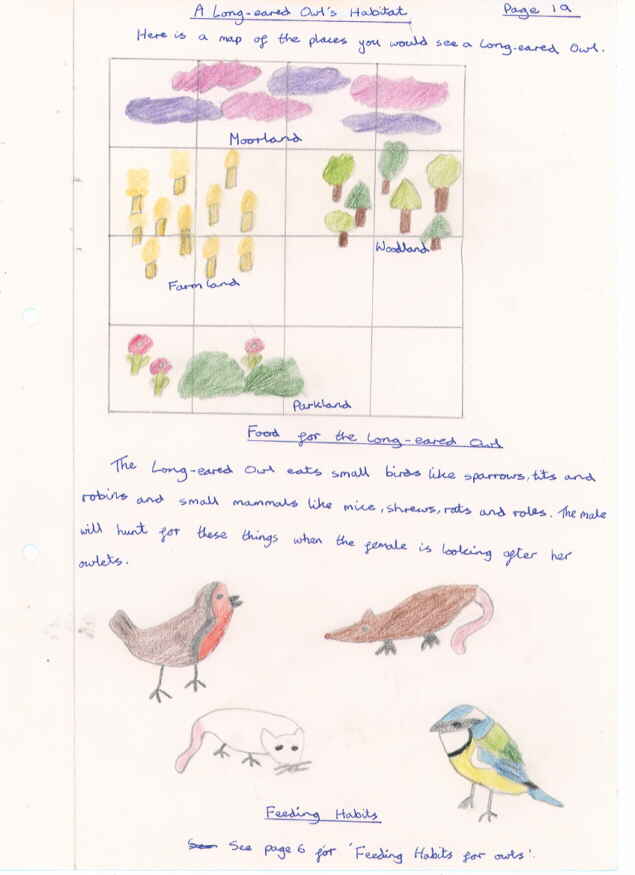 A Long-eared Owl's Habitat
Page 19
Here is a map of the places you would see a Long-eared Owl.
Moorland
Woodland
Farmland
Parkland
Food for the Long-eared Owl
The Long-eared Owl eats small birds like sparrows, tits and
robins and small mammals like mice, shrews, rats and voles. The male
will hunt for these things when the female is looking after her
owlets.
Feeding Habits
See page 6 for 'Feeding Habits for owls'.